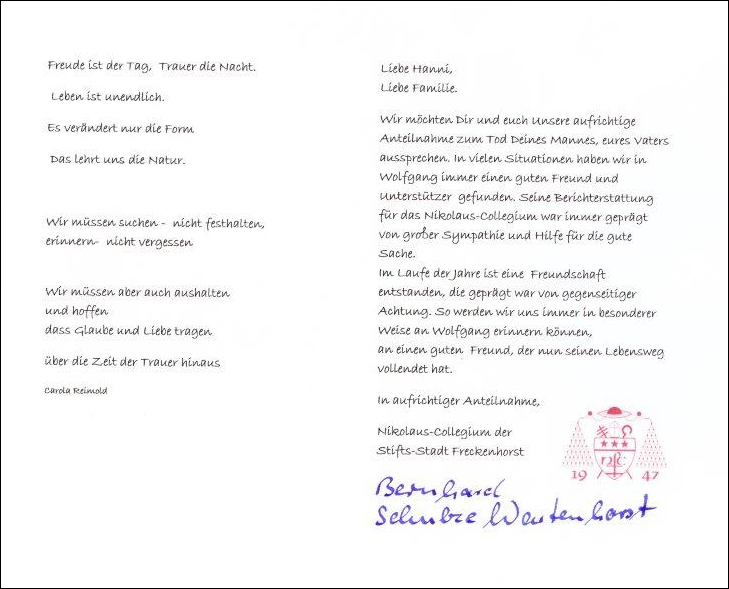 Freude ist der Tag, Trauer die Nacht.
Leben ist unendlich.
Es verändert nur die Form
Das lehrt uns die Natur.
Wir müssen suchen - nicht festhalten,
erinnern- nicht vergessen
Wir müssen aber auch aushalten
und hoffen
dass Glaube und Liebe tragen
über die Zeit der Trauer hinaus
Carola Reimold
Liebe Hanni,
Liebe Familie.
Wir möchten Dir und euch Unsere aufrichtige
Anteilnahme zum Tod Deines Mannes, eures Vaters
aussprechen. In vielen Situationen haben wir in
Wolfgang immer einen guten Freund und
Unterstützer gefunden. Seine Berichterstattung
für das Nikolaus-Collegium war immer geprägt
von großer Sympathie und Hilfe für die gute
Sache.
Im Laufe der Jahre ist eine Freundschaft
entstanden, die geprägt war von gegenseitiger
Achtung. So werden wir uns immer in besonderer
Weise an Wolfgang erinnern können,
an einen guten Freund, der nun seinen Lebensweg
vollendet hat.
In aufrichtiger Anteilnahme,
Nikolaus-Collegium der
Stifts-Stadt Freckenhorst
19 47
Bernhard